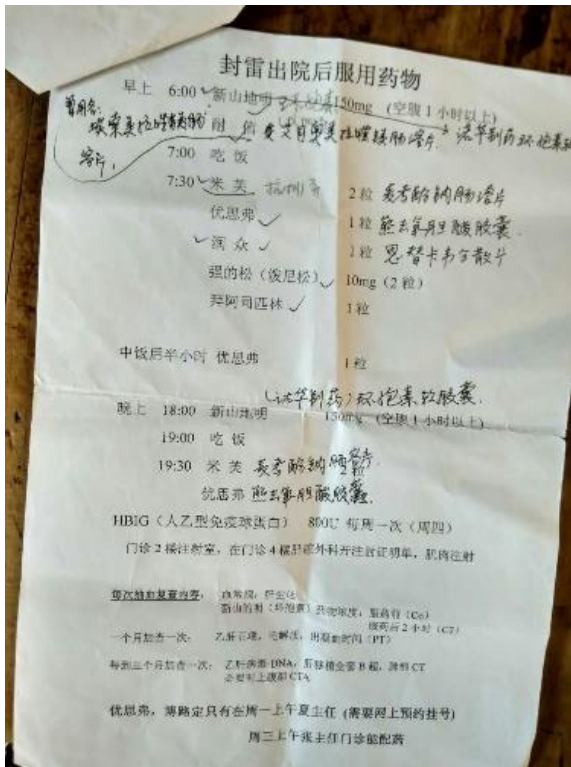 封雷出院后服用药物
早上 6:00 新山地明 150mg (空腹1小时以上)
曾用名:
埃索美拉唑镁肠 耐信 艾司奥美拉唑镁肠溶片. 诺华制药环孢素软
溶片,
7:00 吃饭
7:30 米芙 2粒 麦考酚钠肠溶片
优思弗 1粒 熊去氧胆酸胶囊.
润众 1粒 恩替卡韦分散片
强的松(泼尼松) 10mg (2粒)
拜阿司匹林 1粒
中饭后半小时 优思弗 1粒
(诺华制药)环孢素软胶囊.
晚上 18:00 新山地明 150mg (空腹1小时以上)
19:00 吃饭
19:30 米芙 麦考酚钠肠溶片.
优思弗 熊去氧胆酸胶囊.
HBIG (人乙型免疫球蛋白) 800U 每周一次 (周四)
门诊2楼注射室,在门诊4楼肝胆外科开注射证明单,肌肉注射
每次抽血复查内容: 血常规,肝生化
新山地明(环孢素)药物浓度,服药前(C0)
服药后2小时(C2)
一个月加查一次: 乙肝三系,电解质,出凝血时间(PT)
每到三个月加查一次: 乙肝病毒-DNA,肝移植全套B超,肺部CT
必要时上腹部CTA
优思弗,博路定只有在周一上午夏主任 (需要网上预约挂号)
周三上午张主任门诊能配药